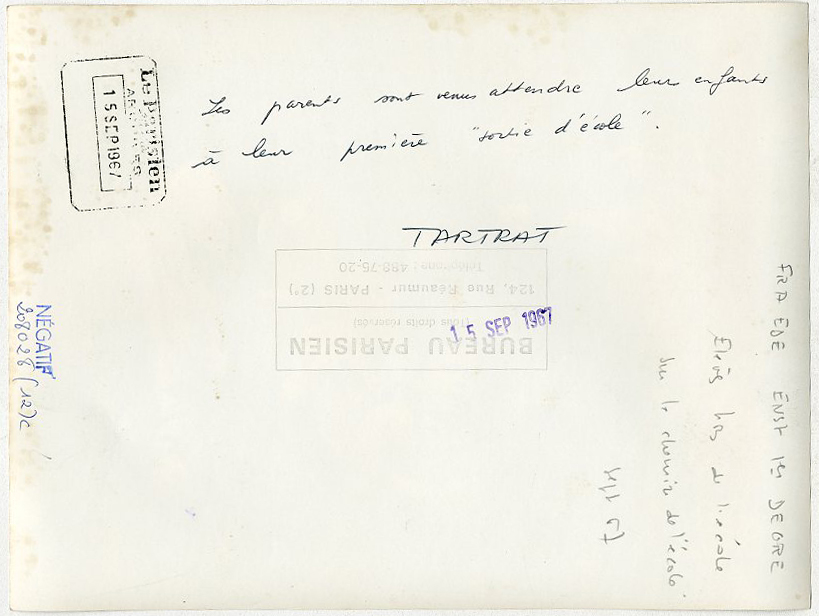 Les parents sont venus attendre leurs enfants
à leur première "sortie d'école".
TARTRAT
Le Parisien
ARCHIVES
15 SEP 1967
BUREAU PARISIEN
(Tous droits réservés)
124, Rue Réaumur - PARIS (2e)
Téléphone : 488-75-20
15 SEP 1967
NÉGATIF
208028 (12)c
FRA EDE ENST 1er DEGRE
Elèves hors de l'école
sur le chemin de l'école
sept 67